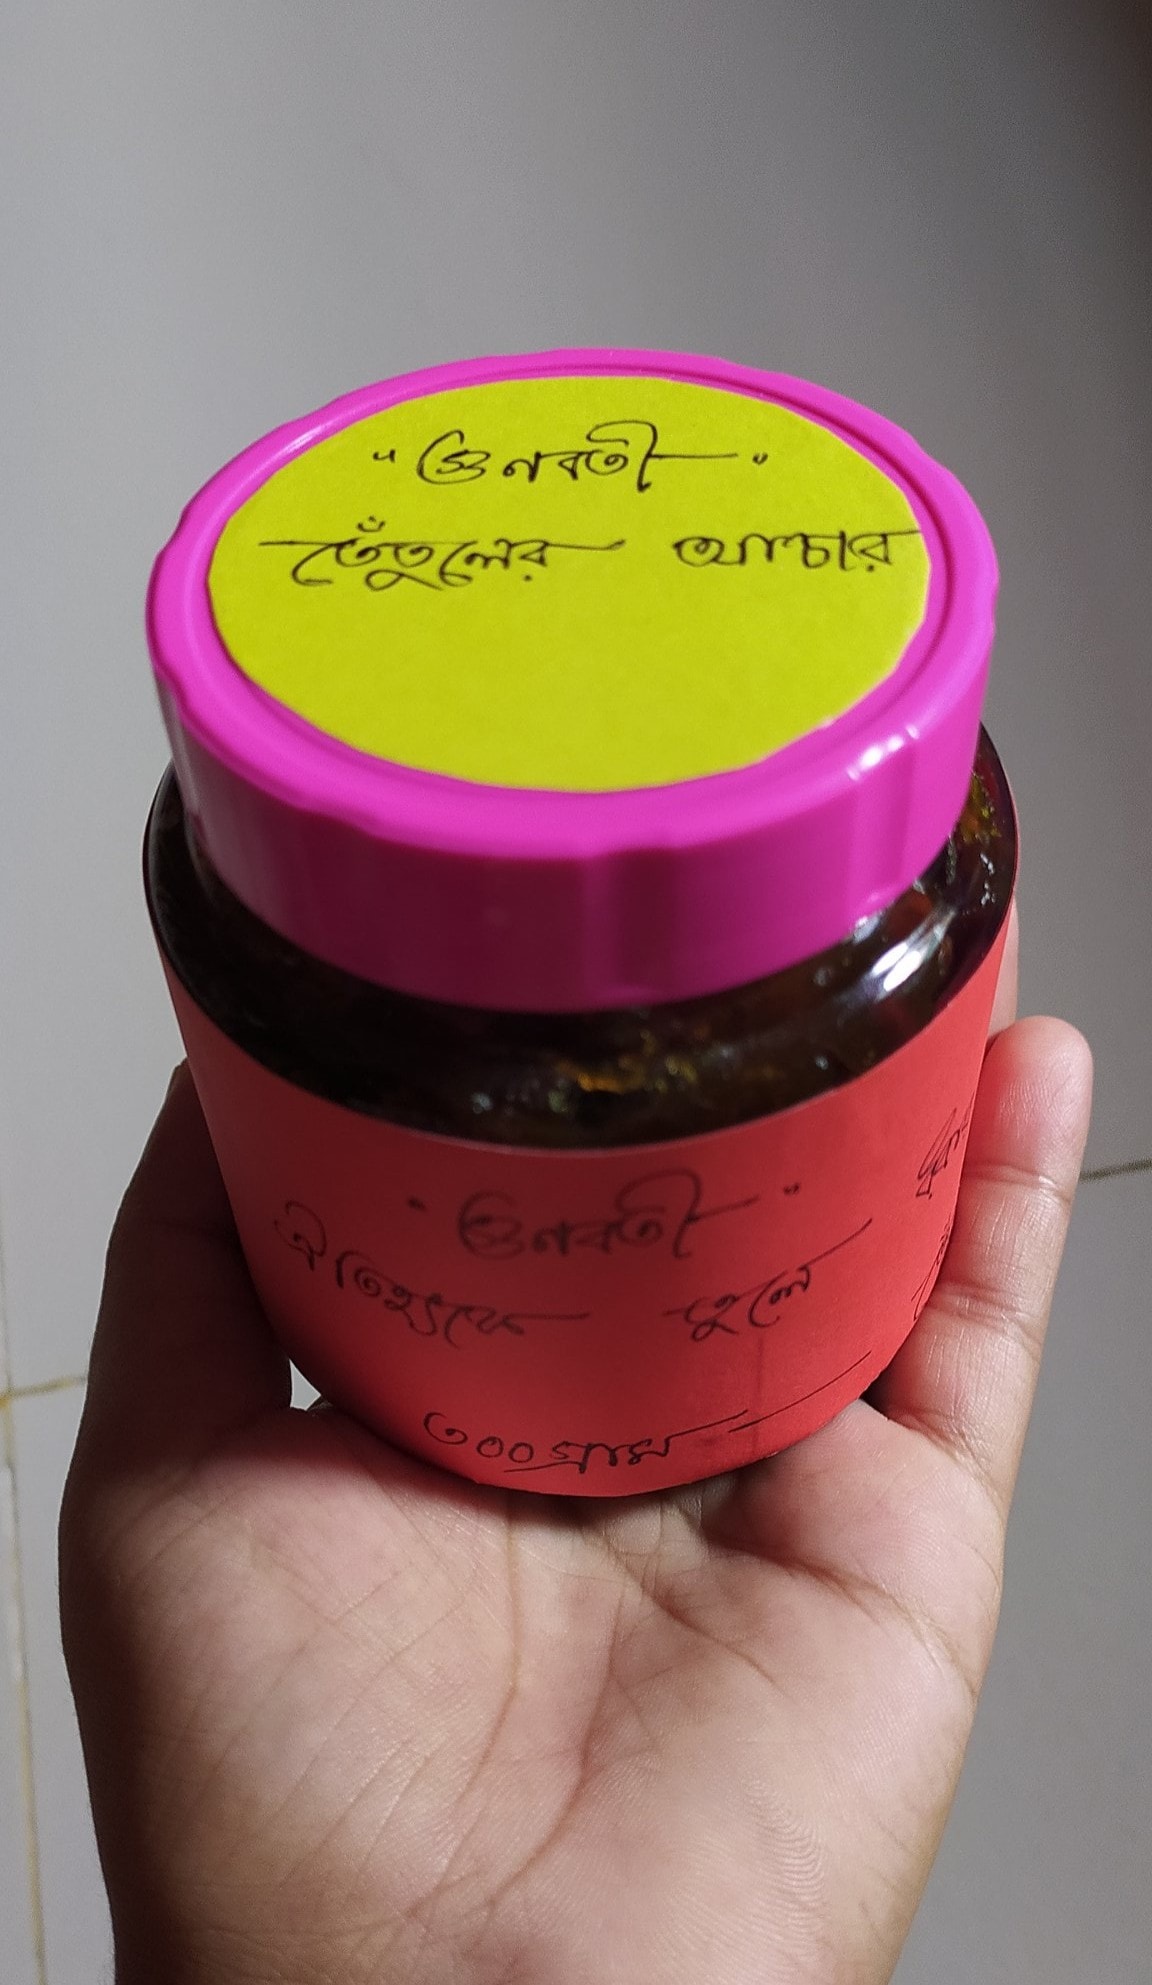 "গুনবতী"
তেঁতুলের আচার
"গুনবতী"
ঐতিহ্যকে তুলে
৩০০গ্রাম